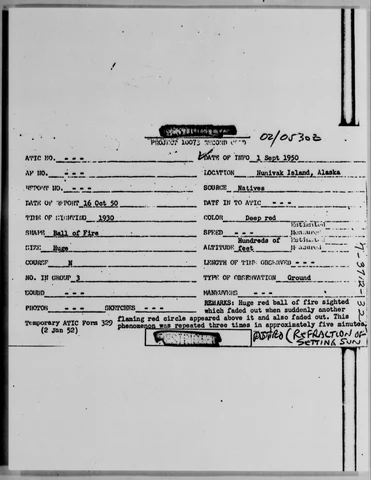 PROJECT 10073 RECORD CARD
02/05303
ATIC NO. - - -
DATE OF INFO 1 Sept 1950
AF NO. - - -
LOCATION Nunivak Island, Alaska
REPORT NO. - - -
SOURCE Natives
DATE OF REPORT 16 Oct 50
DATE IN TO ATIC - - -
TIME OF SIGHTING 1930
COLOR Deep red
SHAPE Ball of Fire
SPEED - - -
Estimated
Measured
SIZE Huge
ALTITUDE Hundreds of feet
Estimated
Measured
COURSE N
LENGTH OF TIME OBSERVED - - -
NO. IN GROUP 3
TYPE OF OBSERVATION Ground
SOUND - - -
MANEUVERS - - -
PHOTOS - - - SKETCHES - - -
REMARKS: Huge red ball of fire sighted
which faded out when suddenly another
Temporary ATIC Form 329
(2 Jan 52)
flaming red circle appeared above it and also faded out. This
phenomenon was repeated three times in approximately five minutes.
ASTRO (REFRACTION OF
SETTING SUN)